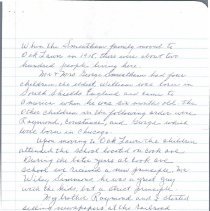 When the Smeatham family moved to
Oak Lawn in 1915, there were about two
hundred people living here.
Mr + Mrs George Smeatham had four
children, the eldest, William was born in
South Shields England and came to
America when he was six weeks old. The
other children in the following order were
Raymond, and George which
were born in Chicago.
Upon moving to Oak Lawn the children
attended the school located on Oak ave
During the years at Oak ave
school we a new principle, Mr.
Wiley Simmons he was a great guy
with the kids, but a strict principle.
My brother Raymond and I started
selling newspapers at the railroad